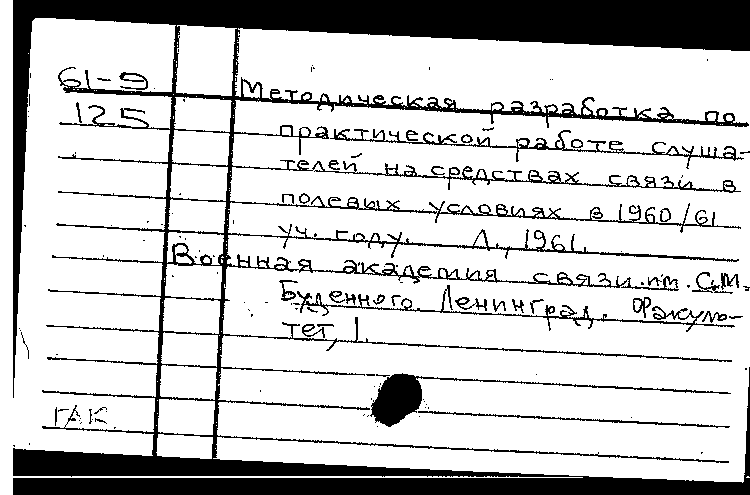 61-9
125
Методическая разработка по
практической работе слуша-
телей на средствах связи в
полевых условиях в 1960/61
уч. году. Л., 1961.
Военная академия связи им. С.М.
Буденного. Ленинград. Факуль-
тет, 1.
ГАК